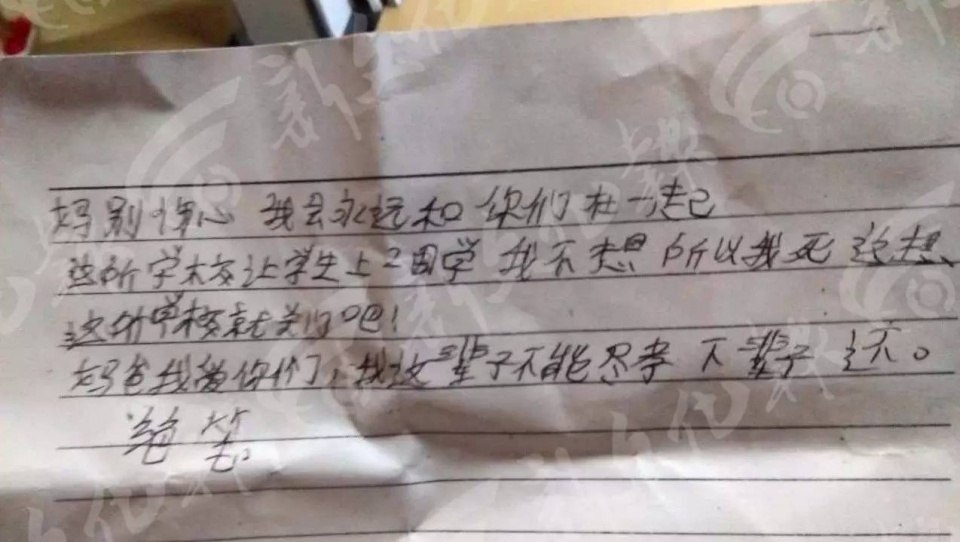 妈别伤心 我会永远和你们在一起
这所学校让学生上2周学 我不想 所以我死 这想
这所学校就关门吧！
妈爸我爱你们，我这辈子不能尽孝 下辈子还。
绝笔